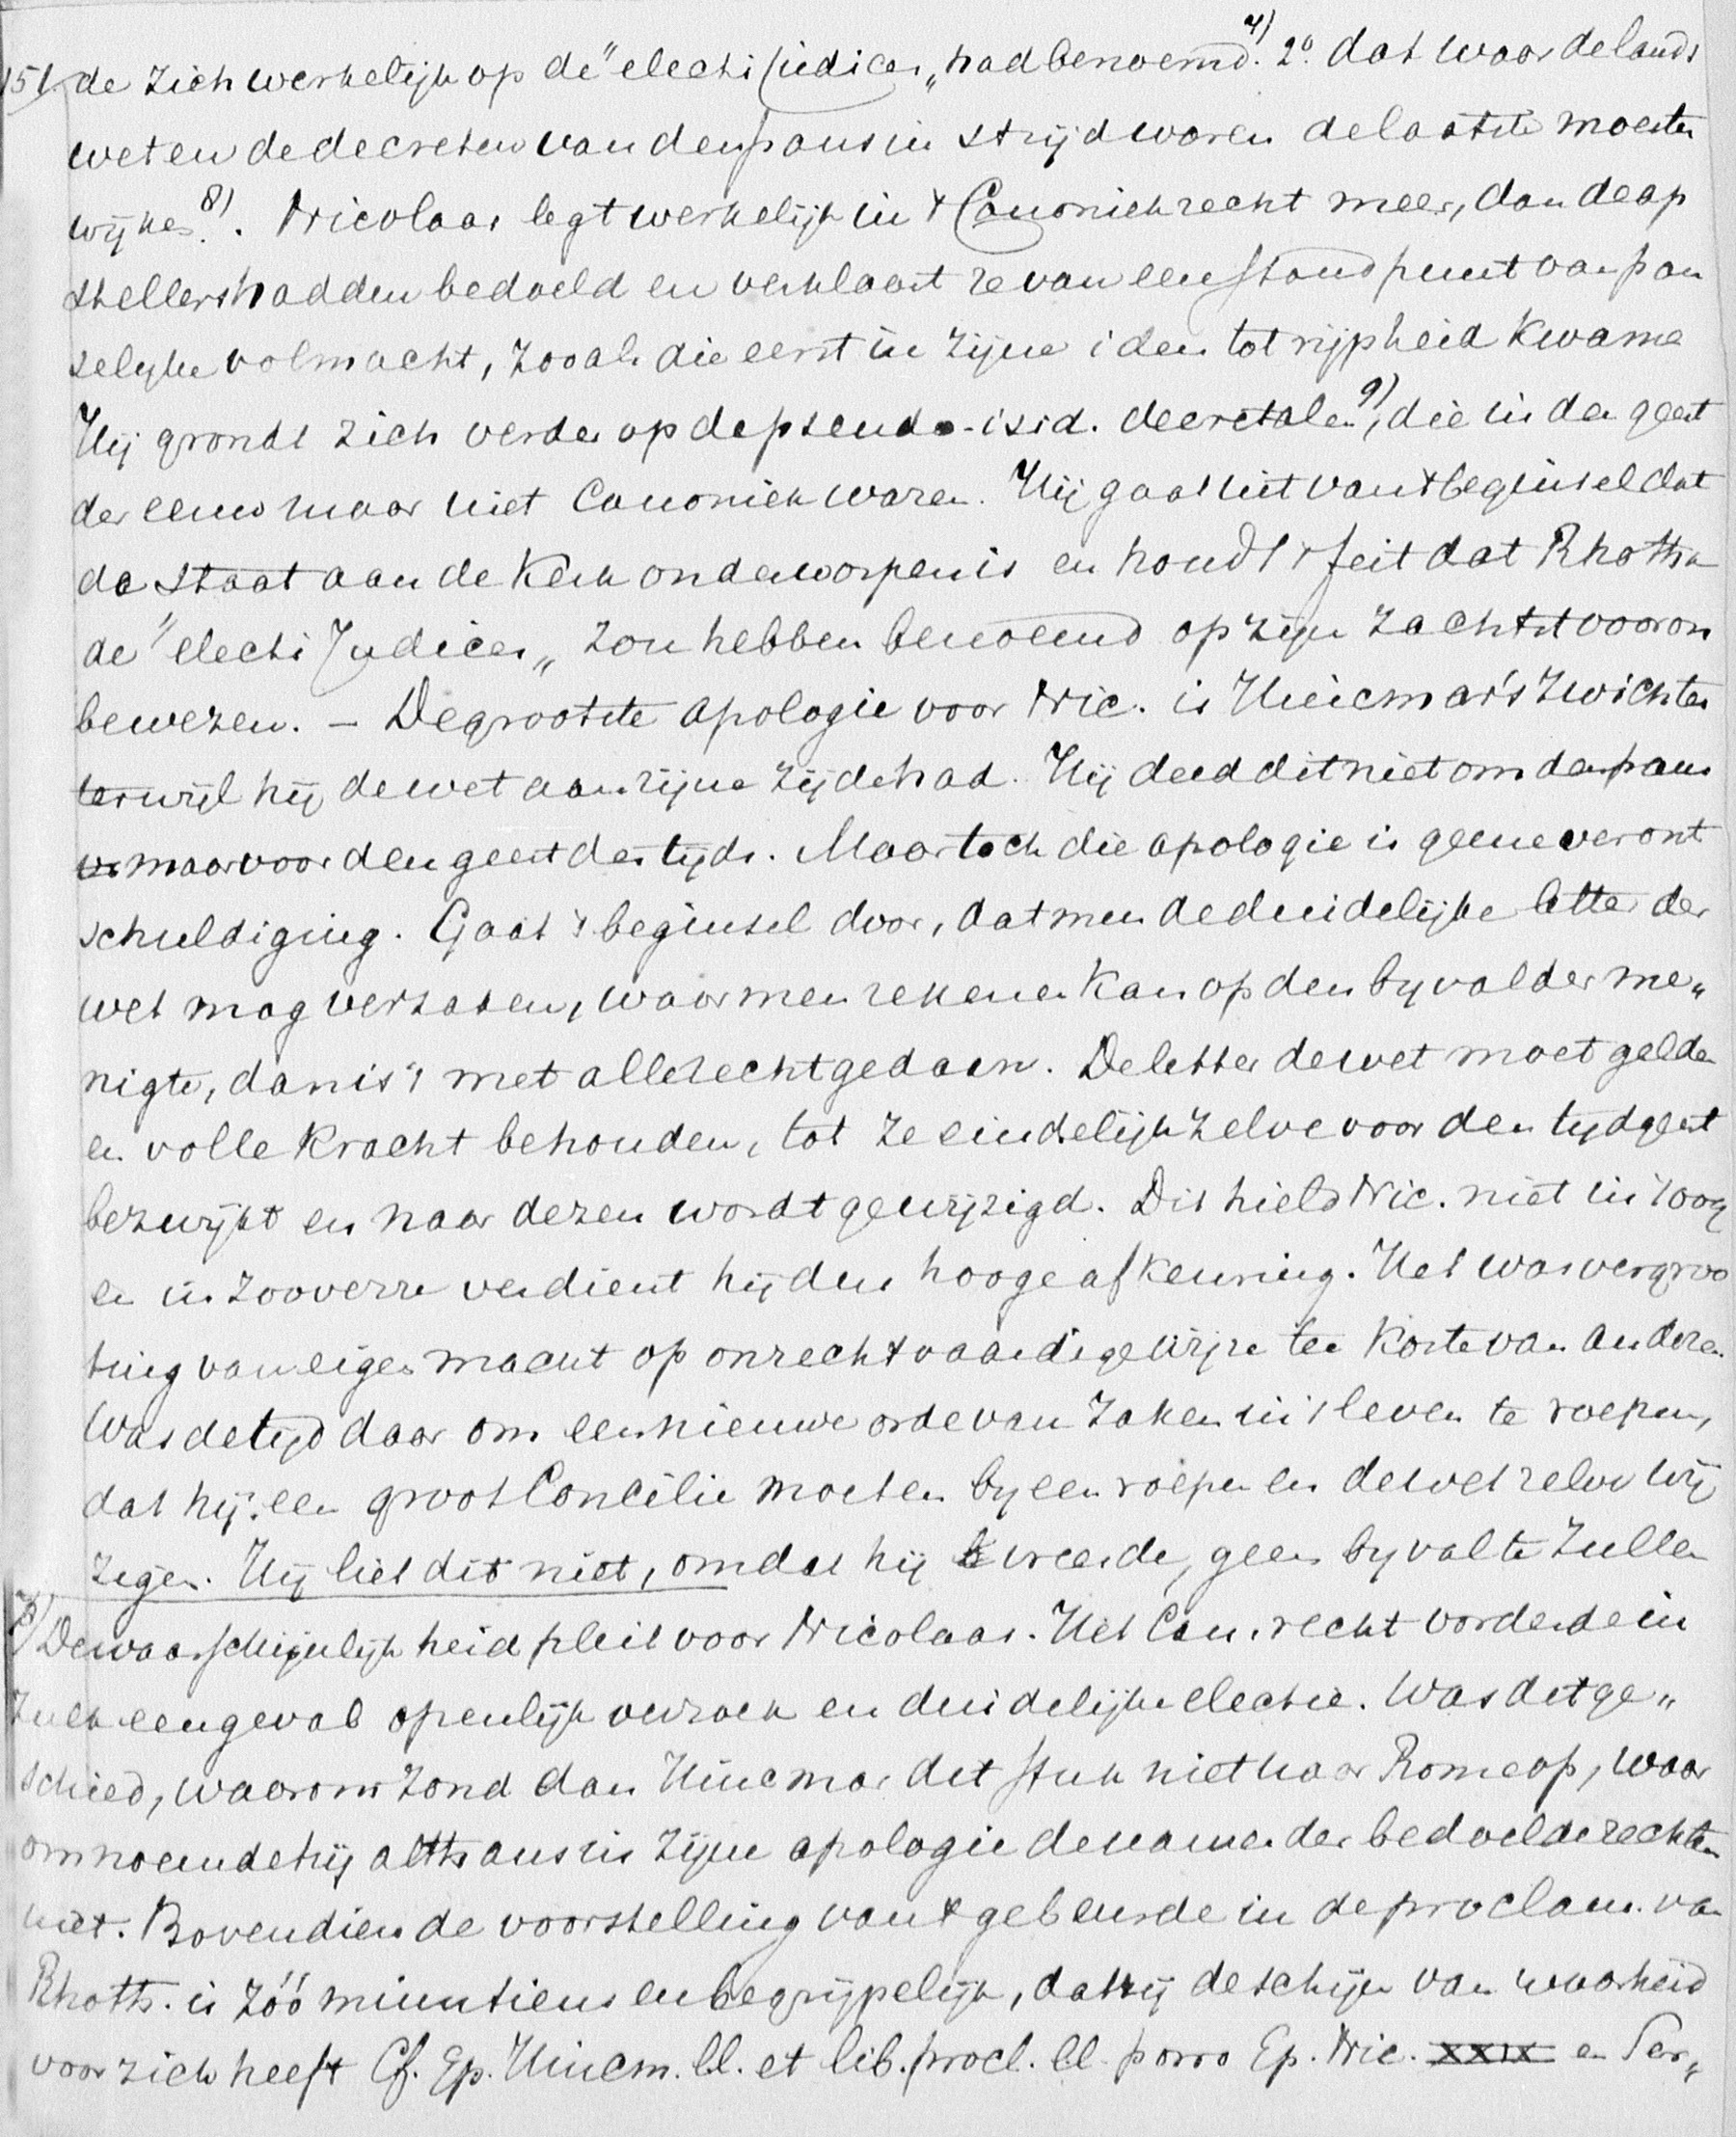 151 de zich werkelijk op de "electi judices„ had benoemd. 7) 2o. dat waar de lands
wetten de decreten van den paus in strijd waren de laatste moesten
wijken 8). Nicolaas legt werkelijk in 't Canoniek recht meer, dan de op
stellers hadden bedoeld en verklaart ze van een standpunt van pau
selijke volmacht, zooals die eerst in zijne ideen tot rijpheid kwame
Hij grondt zich verder op de pseudo-isid. decretalen 9), die in den geest
der eeuw maar niet Canoniek waren. Hij gaat uit van 't beginsel dat
de staat aan de Kerk onderworpen is en houdt 't feit dat Rhothad
de "electi Judices„ zou hebben benoemd op zijn zachtst vooron
bewezen. – De grootste apologie voor Nic. is Hincmar's zwichten
terwijl hij de wet aan zijne zijde had. Hij deed dit niet om den paus
maar voor den geest des tijds. Maar toch die apologie is geene veront
schuldiging. Gaat 't beginsel door, dat men de duidelijke letter der
wet mag verzaken, waar men rekenen kan op den byval der me„
nigte, dan is 't met alle recht gedaan. De letter der wet moet gelden
en volle kracht behouden, tot ze eindelijk zelve voor den tijdgeest
bezwijkt en naar dezen wordt gewijzigd. Dit hield Nic. niet in 't oog
en in zooverre verdient hij dus hooge afkeuring. Het was vergroo
ting van eigen macht op onrechtvaardige wijze ten koste van anderen.
Was de tijd daar om een nieuwe orde van zaken in 't leven te roepen,
dat hij een groot Concilie moeten byeen roepen en de wet zelve wij
zigen. Hij liet dit niet, omdat hij vreesde, geen byval te zullen
7) De waarschijnlijkheid pleit voor Nicolaas. Het Can. recht vorderde in
zulk een geval openlijk verzoek en duidelijke electie. Was dit ge„
schied, waarom zond dan Hincmar dit stuk niet naar Rome op, waar
om noemde hij althans in zijne apologie de namen der bedoelde rechters
niet. Bovendien de voorstelling van 't gebeurde in de proclam. van
Rhoth. is zóó minutieus en begrijpelijk, dat zij de schijn van waarheid
voor zich heeft Cf. Ep. Hincm. ll. et lib. procl. ll. porro Ep. Nic. XXIX en Ser„